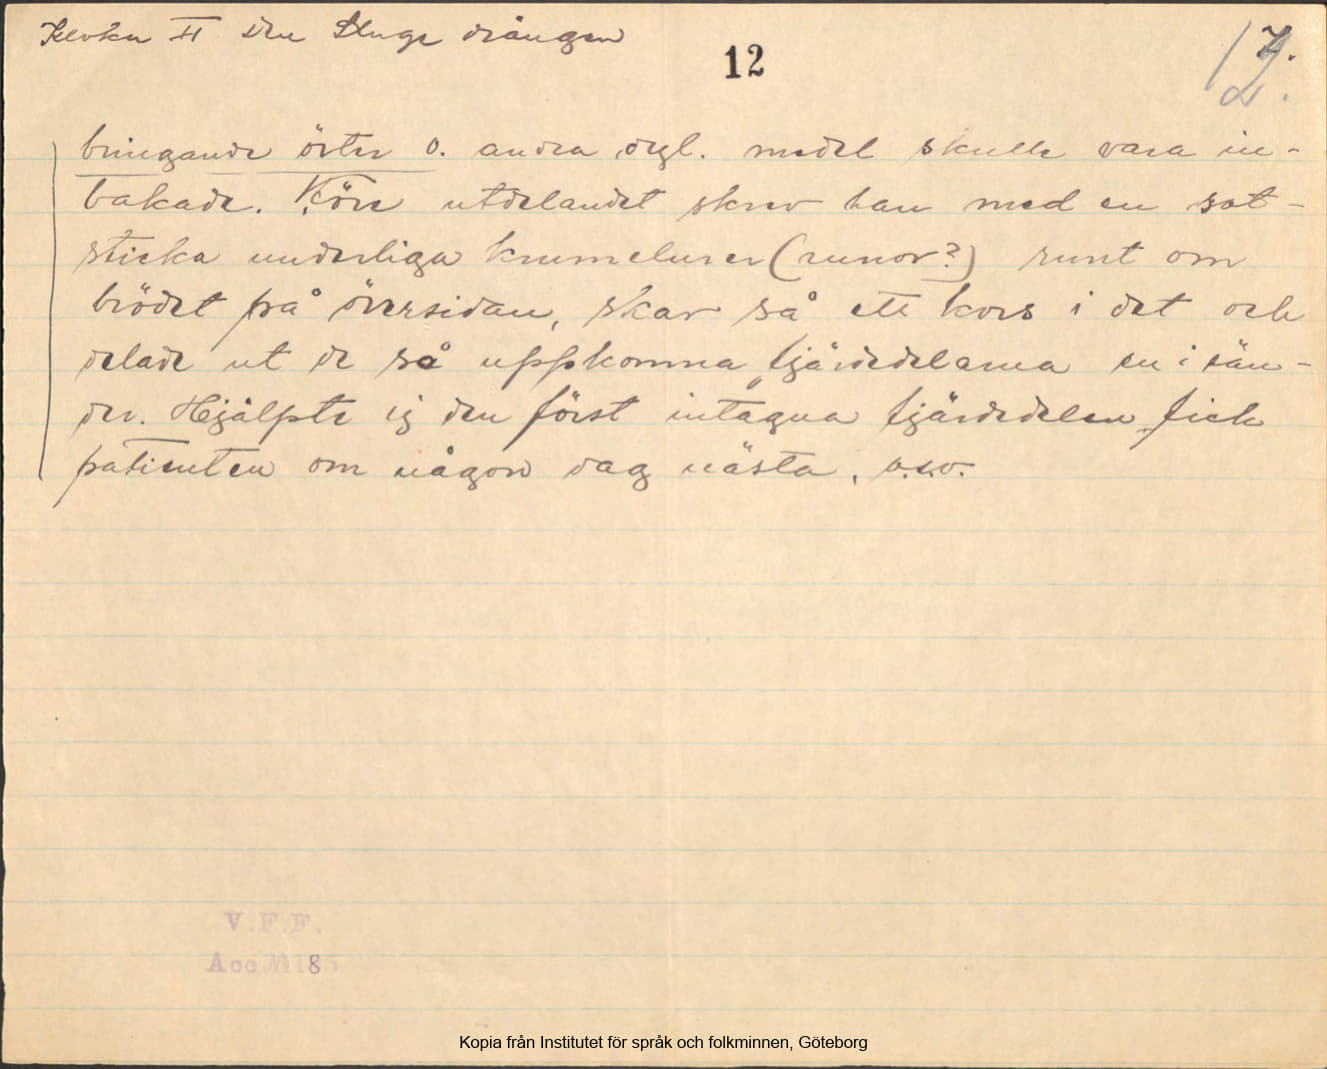 Kloka II Den Sluge drängen
12
12.
7.
bringande örter o. andra dyl. medel skulle vara in-
bakade. Före utdelandet skrev han med en sot-
sticka underliga krumelurer (runor?) runt om
brödet på översidan, skar så ett kors i det och
delade ut de så uppkomna fjärdedelarna en i sän-
der. Hjälpte ej den först intagna fjärdedelen, fick
patienten om någon dag nästa, o.s.v.
V.F.F.
Acc № 185
Kopia från Institutet för språk och folkminnen, Göteborg